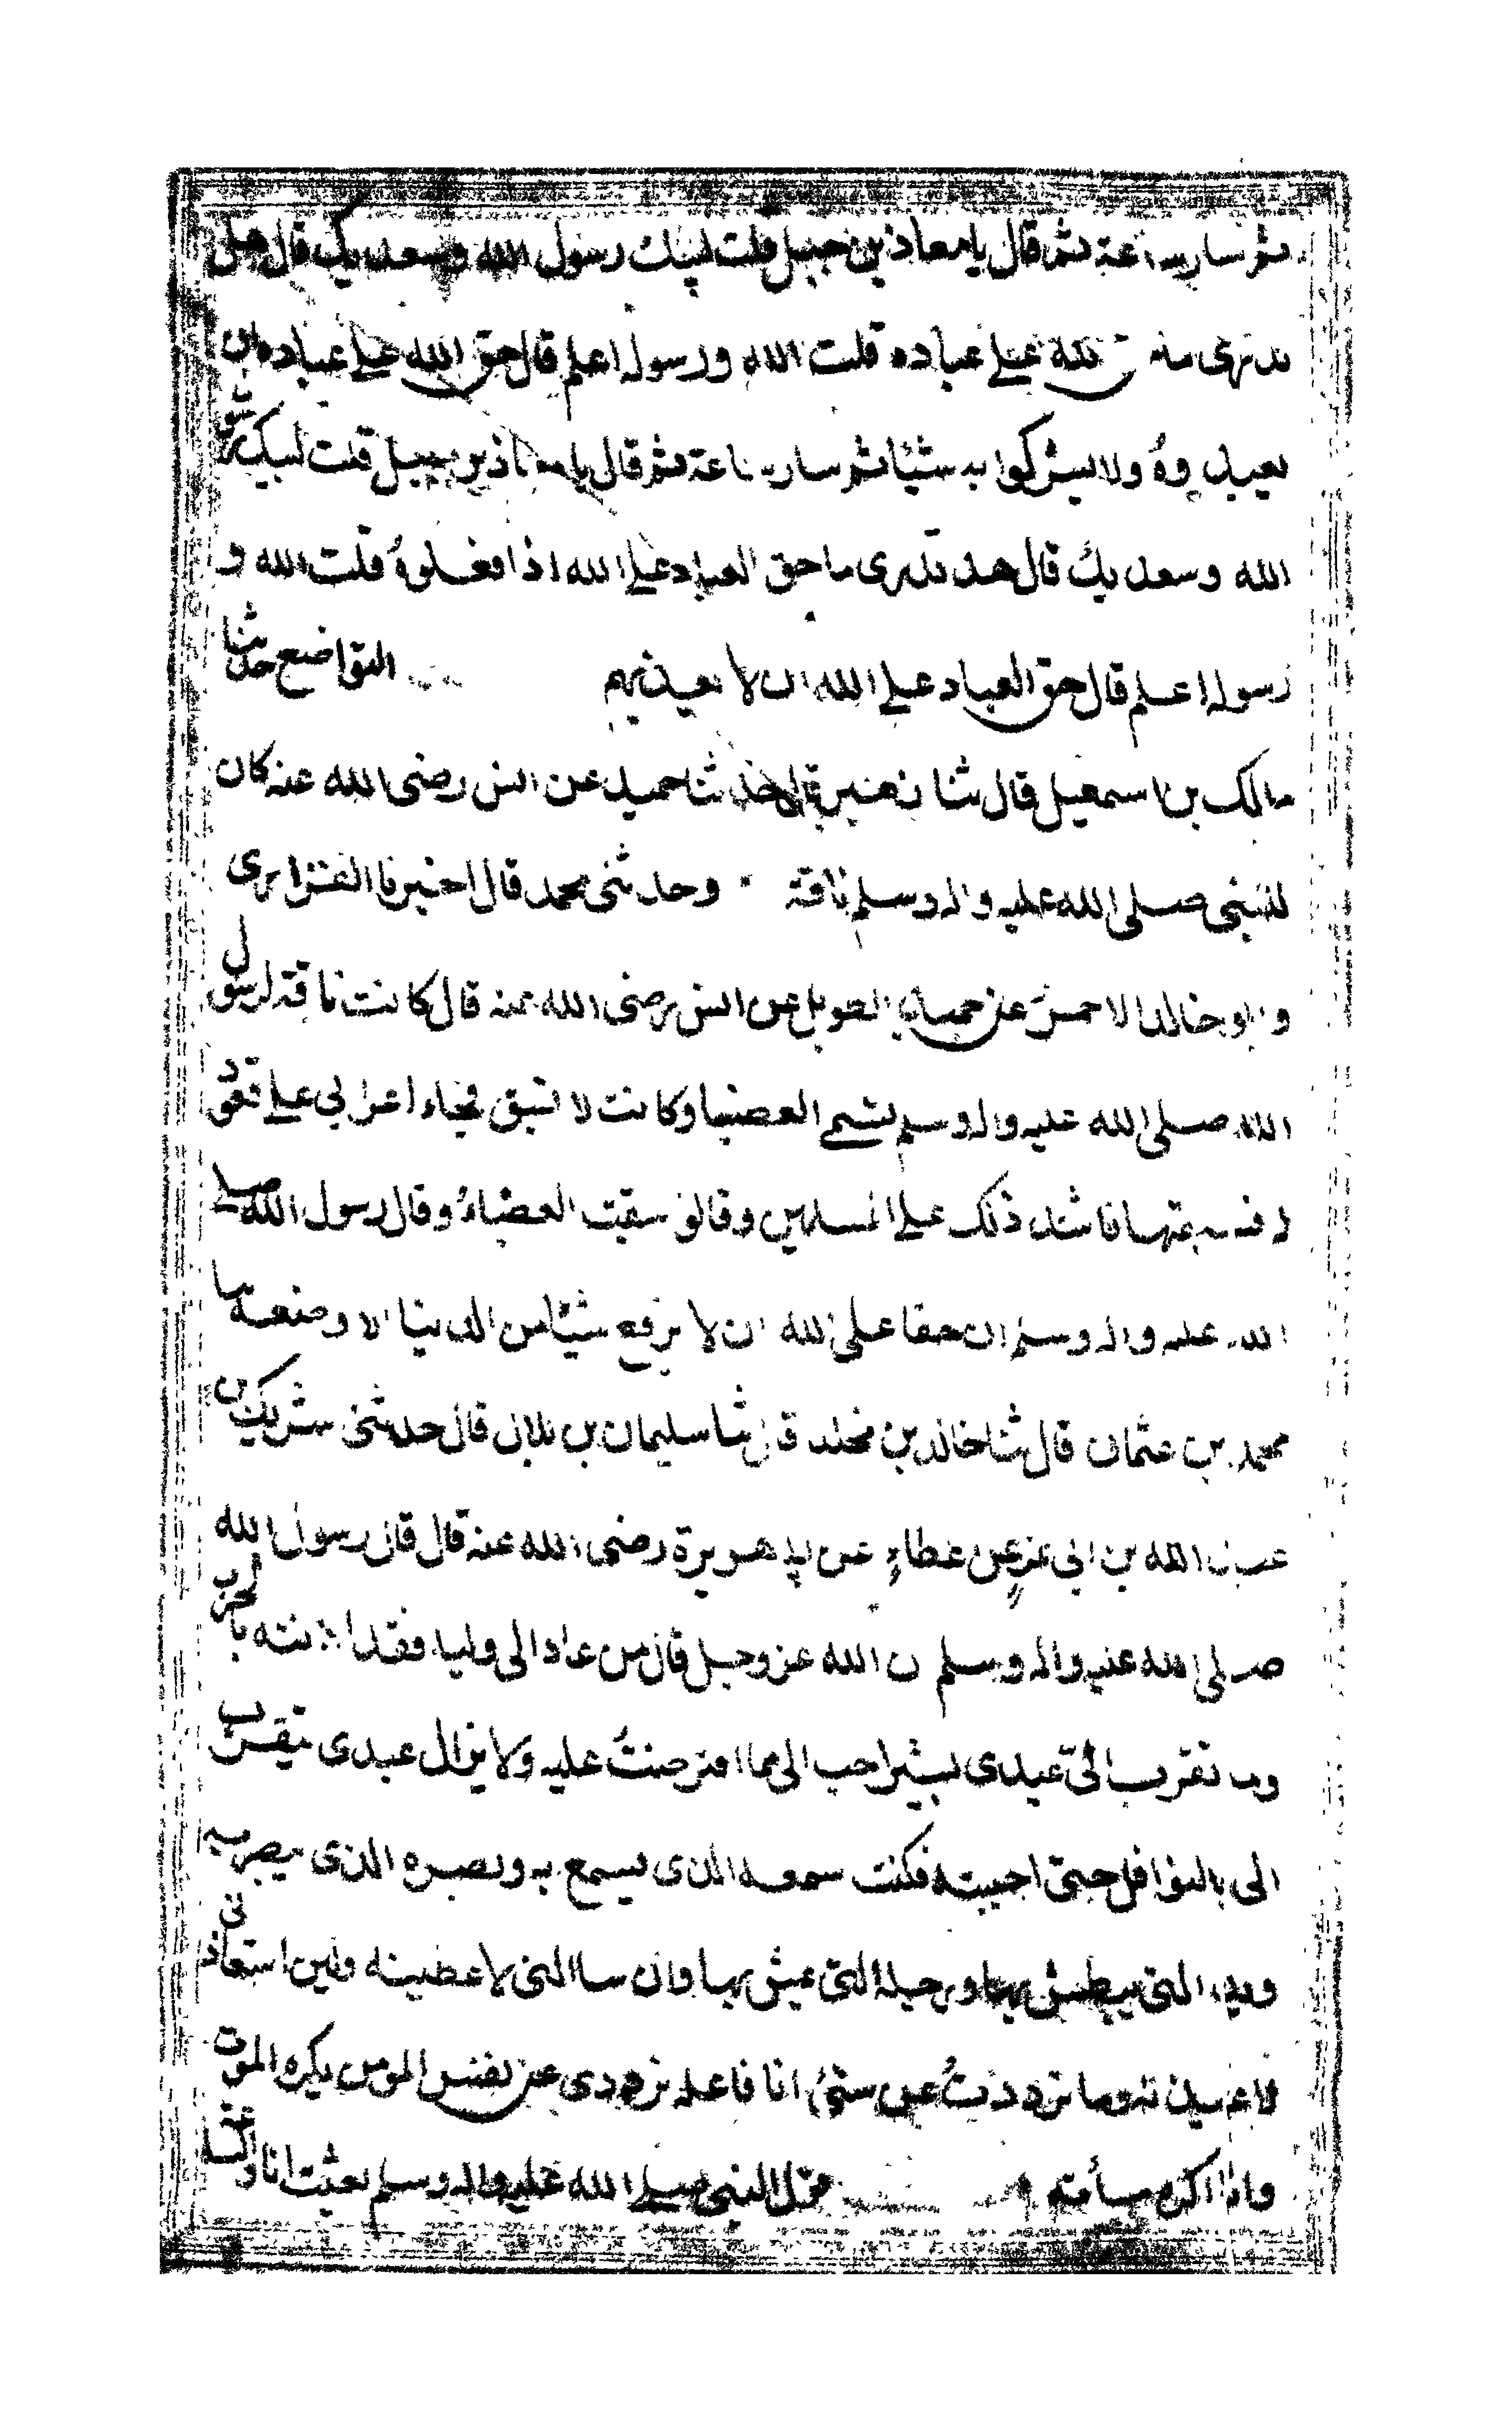 ثم سار ساعة ثم قال يا معاذ بن جبل قلت لبيك رسول الله وسعديك قال هل
تدرى ما حق الله على عباده قلت الله ورسوله اعلم قال حق الله على عباده ان
يعبدوهُ ولا يشركوا به شيئا ثم سار ساعة ثم قال يا معاذ بن جبل قلت لبيك رسول
الله وسعديك قال هل تدرى ما حق العباد على الله اذا فعلوهُ قلت الله و
رسوله اعلم قال حق العباد على الله ان لا يعذبهم التواضع حدثنا
مالك بن اسمعيل قال ثنا زهير قال حدثنا حميد عن انس رضى الله عنه كان
للنبى صلى الله عليه واله وسلم ناقة وحدثنى محمد قال اخبرنا الفزارى
وابو خالد الاحمر عن حميد الطويل عن انس رضى الله عنه قال كانت ناقة لرسول
الله صلى الله عليه واله وسلم تسمى العضبا وكانت لا تسبق فجاء اعرابى على قعود
له فسبقها فاشتد ذلك على المسلمين وقالو سبقت العضباءُ وقال رسول الله صلى
الله عليه واله وسلم ان حقا على الله ان لا يرفع شيئا من الدنيا الا وضعه
محمد بن عثمان قال ثنا خالد بن مخلد قال ثنا سليمان بن بلال قال حدثنى شريك بن
عبد الله بن ابى نمرٍ عن عطاءٍ عن ابى هريرة رضى الله عنه قال قال رسول الله
صلى الله عليه واله وسلم ان الله عز وجل قال من عادا لى وليا فقد اذنته بالحرب
وما تقرب الىّ عبدى بشئ احب الى مما افترضتُ عليه ولا يزال عبدى يتقرب
الى بالنوافل حتى احببته فكنت سمعه الذى يسمع به وبصره الذى يبصر به
ويده التى يبطش بها ورجله التى يمشى بها وان سالنى لاعطينه ولين استعاذنى
لاعيذنه وما ترددتُ عن شئ انا فاعله ترددى عن نفس المومن يكره الموت
وانا اكره مسأته قول النبى صلى الله عليه واله وسلم بعثت انا والساعة